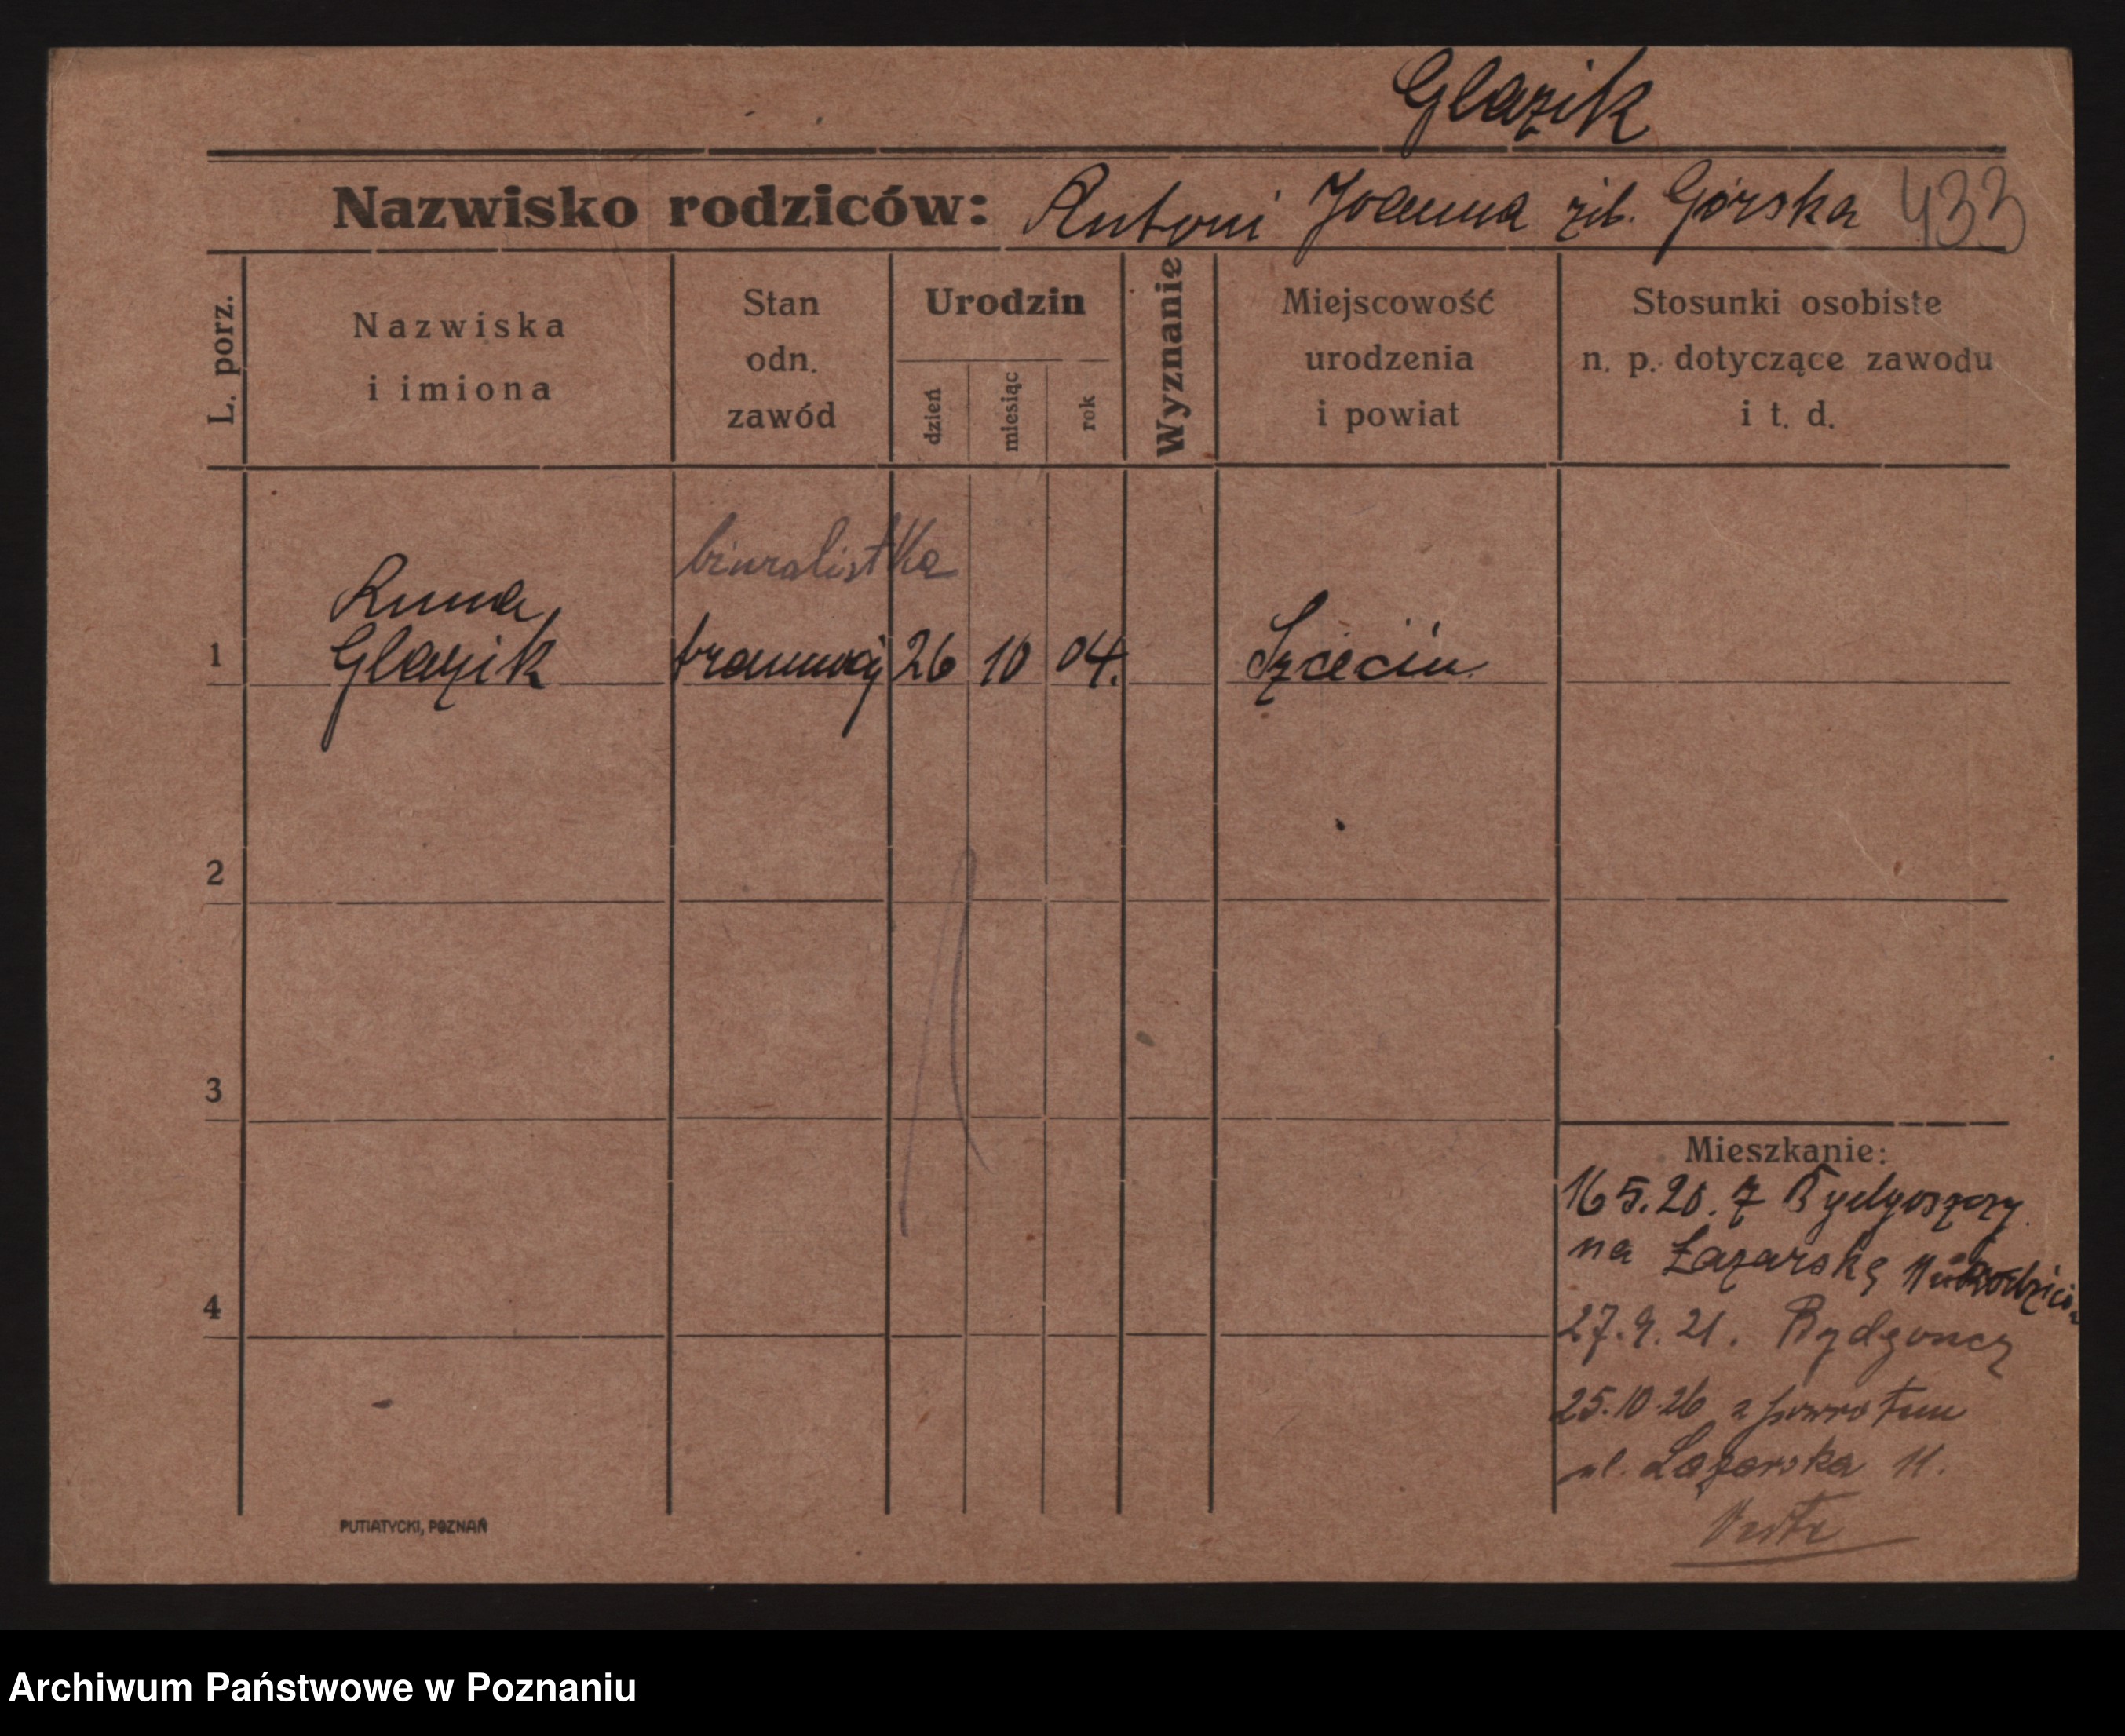 Glazik
Nazwisko rodziców: Antoni Joanna zib. Górska 433
L. porz.
Nazwiska
i imiona
Stan
odn.
zawód
Urodzin
dzień
miesiąc
rok
Wyznanie
Miejscowość
urodzenia
i powiat
Stosunki osobiste
n. p. dotyczące zawodu
i t. d.
biuralistka
Anna
1 Glazik tramwaj 26 10 04. Szcecin
2
3
4
Mieszkanie:
16 5.20. z Bydgoszczy
na Łazarską 11
27.9.21. Bydgoszcz
25.10.26 z powrotem
ul. Łazarska 11.
PUTIATYCKI, POZNAŃ
Archiwum Państwowe w Poznaniu